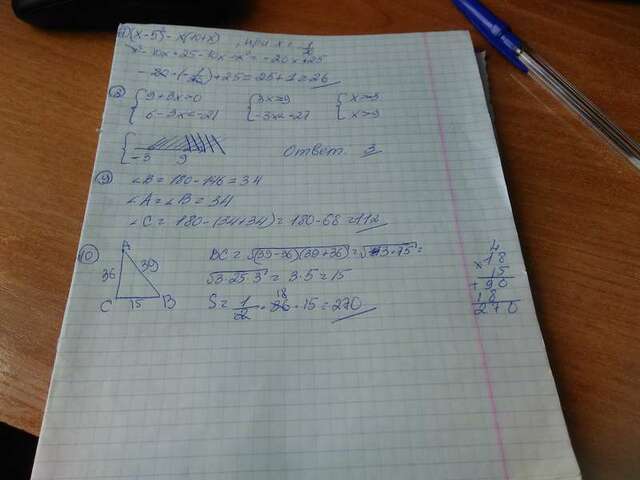 (x-5)² - x(10+x), при x = -1/20
x² - 10x + 25 - 10x - x² = -20x + 25
-20 · (-1/20) + 25 = 25 + 1 = 26
8 { 9+3x>0 { 3x>-9 { x>-3
6-3x<-21 -3x<-27 x>9
-3 9 Ответ. 3
9 ∠B = 180 - 146 = 34
∠A = ∠B = 34
∠C = 180 - (34+34) = 180 - 68 = 112
10 A
36 39
C 15 B
BC = √(39-36)(39+36) = √3·75 =
√3·25·3 = 3·5 = 15
S = 1/2 · 36 · 15 = 270
18
4
× 18
15
+ 90
18
270